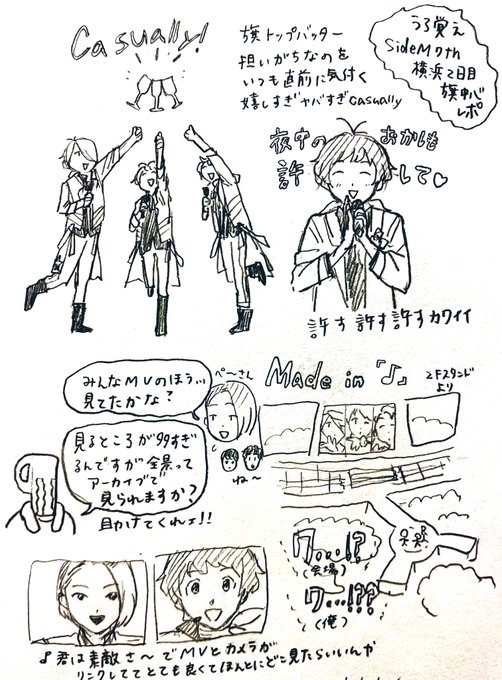 うろ覚え
SideM 7th
横浜2日目
旗中心
レポ
Casually!
旗トップバッター
担いがちなのを
いつも直前に気付く
嬉しすぎヤバすぎcasually
夜中のおかしも
許して♡
許す 許す 許す カワイイ
みんなMVのほう...
見てたかな?
ぺ〜さん
ね〜
見るところが多すぎ
るんですが全景って
アーカイブで
見られますか?
助けてくれェ!!
Made in「♪」
2Fスタンド
より
ワ...!?
(会場)
ワ...!??
(俺)
♪君は素敵さ〜でMVとカメラが
リンクしててとても良くてほんとにどこ見たらいいんか